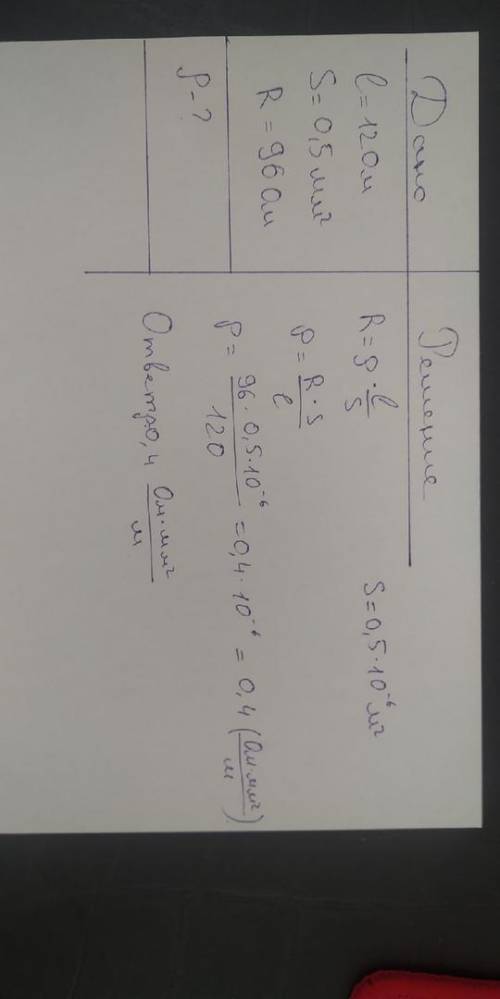 Дано
l = 120м
S = 0,5 мм²
R = 96 Ом
ρ - ?
Решение
R = ρ · l/S
S = 0,5 · 10⁻⁶ м²
ρ = R · S / l
ρ = 96 · 0,5 · 10⁻⁶ / 120 = 0,4 · 10⁻⁶ = 0,4 (Ом · мм² / м).
Ответ: 0,4 Ом · мм² / м